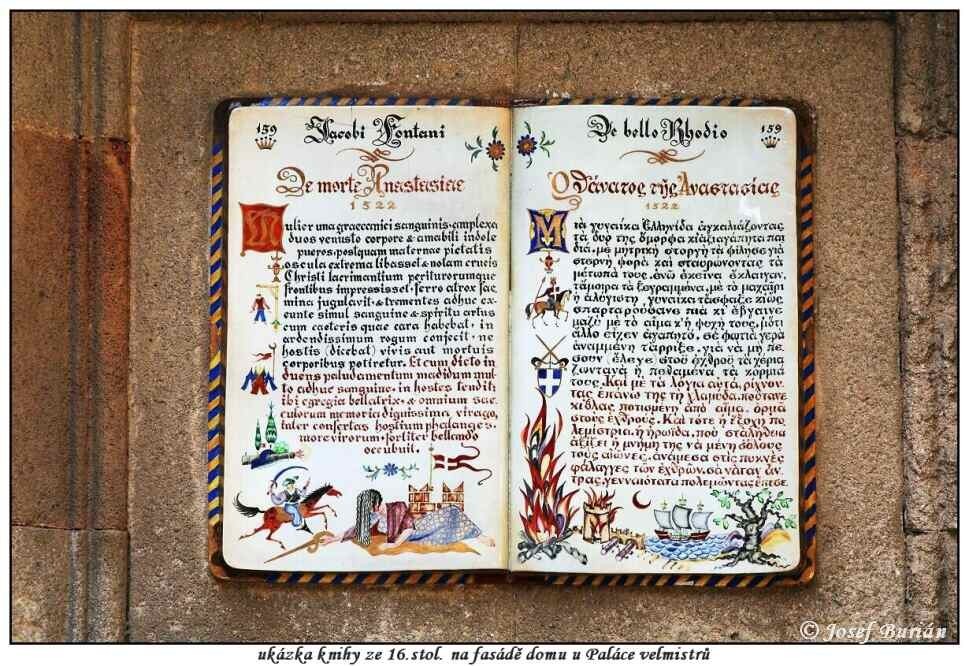 159
Jacobi Fontani
De morte Anastasiae
1522
Mulier una graecanici sanguinis, amplexa
duos venusto corpore & amabili indole
pueros, posquam maternae pietatis
oscula extrema libasset & notam crucis
Christi lacrimantium periturorumque
frontibus impressisset, ferro atrox fae
mina jugulavit & trementes adhuc ex
eunte simul sanguine & spiritu artus
cum caeteris quae cara habebat, in
ardendissimum rogum conjecit, ne
hostis (dicebat) vivis aut mortuis
corporibus potiretur. Et cum dicto in
duens paludamentum madidum mul
to adhuc sanguine, in hostes tendit;
ibi egregia bellatrix, & omnium sae
culorum memoria dignissima virago,
inter consertas hostium phalanges,
more virorum, fortiter bellando
occubuit.
De bello Rhodio
159
Ὁ θάνατος τῆς Ἀναστασίας
1522
Μιὰ γυναίκα Ἑλληνίδα ἀγκαλιάζοντας
τὰ δυό της ὄμορφα κι ἀξιαγάπητα παι
διά, μὲ μητρικὴ στοργὴ τὰ φίλησε γιὰ
στερνὴ φορὰ καὶ σταυρώνοντας τὰ
μέτωπά τους, ἐνῶ ἐκεῖνα ἔκλαιγαν,
τἄμοιρα τὰ ξεγραμμένα, μὲ τὸ μαχαίρι
ἡ ἀλόγιστη γυναίκα τἄσφαξε κι ὅπως
σπαρταρούσανε πιὰ κι ἔβγαινε
μαζὺ μὲ τὸ αἷμα κ' ἡ ψυχή τους, μ' ὅτι
ἄλλο εἶχεν ἀγαπητό, σὲ φωτιὰ γερὰ
ἀναμμένη τἄρριξε, γιὰ νὰ μὴ πέ
σουν (ἔλεγε) στοῦ ἐχθροῦ τὰ χέρια
ζωντανὰ ἢ πεθαμένα τὰ κορμιά
τους. Καὶ μὲ τὰ λόγια αὐτά, ρίχνον
τας ἐπάνω της τὴ χλαμύδα, ποὔτανε
κιόλας ποτισμένη ἀπὸ αἷμα, ὁρμᾶ
στοὺς ἐχθρούς. Καὶ τότε ἡ ἔξοχη πο
λεμίστρια, ἡ ἡρωΐδα, ποὺ στ' ἀλήθεια
ἀξίζει ἡ μνήμη της νὰ μένη σ' ὅλους
τοὺς αἰῶνες, ἀνάμεσα στὶς πυκνὲς
φάλαγγες τῶν ἐχθρῶν, σὰ νἆταν ἄν
τρας, γενναιότατα πολεμώντας ἔπεσε.
© Josef Burián
ukázka knihy ze 16.stol. na fasádě domu u Paláce velmistrů